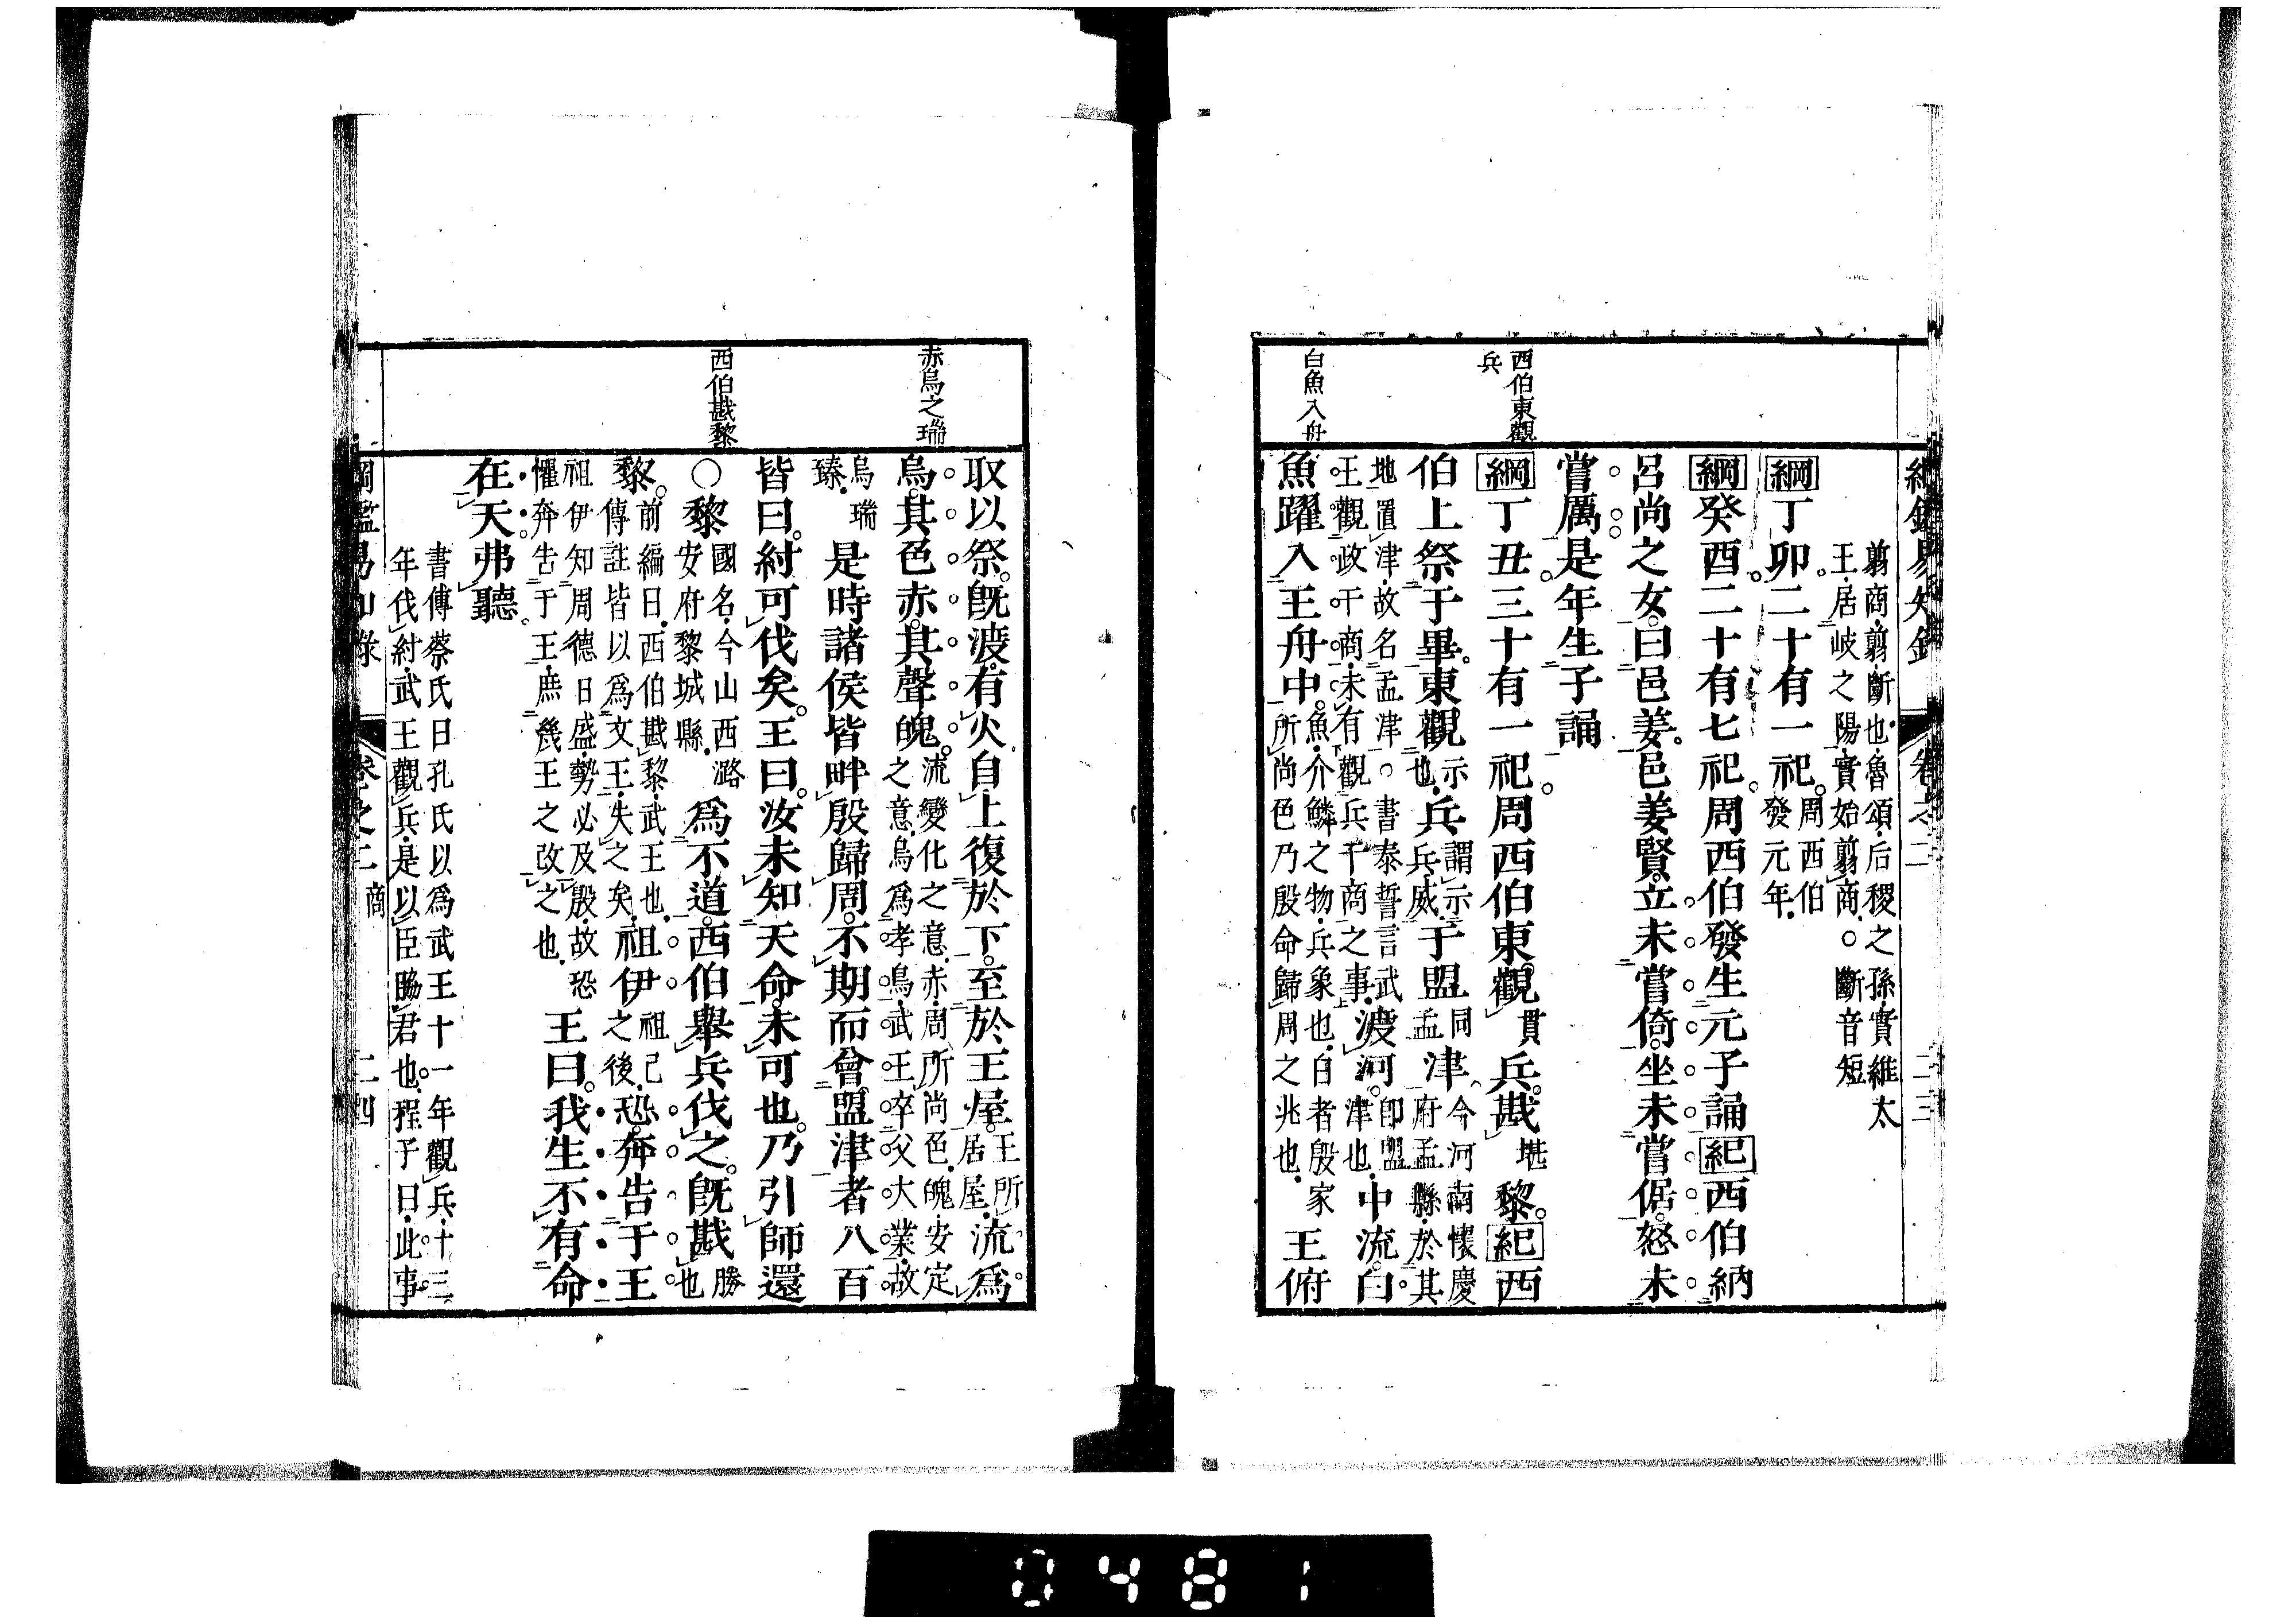 翦商翦斷也魯頌后稷之孫實維太
王居岐之陽實始翦商○斷音短
綱丁卯二十有一祀周西伯發元年
綱癸酉二十有七祀周西伯發生元子誦紀西伯納
呂尚之女曰邑姜邑姜賢立未嘗倚坐未嘗倨怒未
嘗厲是年生子誦
西伯東觀兵
綱丁丑三十有一祀周西伯東觀貫兵戡堪黎紀西
伯上祭于畢東觀示也兵謂示兵威于盟同孟津今河南懷慶府孟縣於其
地置津故名孟津○書泰誓言武王觀政于商未有觀兵于商之事渡河卽盟津也中流白
白魚入舟
魚躍入王舟中魚介鱗之物兵象也白者殷家所尚色乃殷命歸周之兆也王俯
卷之二
二十三
取以祭旣渡有火自上復於下至於王屋王所居屋流爲
赤烏之瑞
烏其色赤其聲魄流變化之意赤周所尚色魄安定之意烏爲孝鳥武王卒父大業故
烏瑞臻是時諸侯皆畔殷歸周不期而會盟津者八百
皆曰紂可伐矣王曰汝未知天命未可也乃引師還
西伯戡黎
○黎國名今山西潞安府黎城縣爲不道西伯舉兵伐之旣戡勝也
黎前編曰西伯戡黎武王也傳註皆以爲文王失之矣祖伊祖己之後恐奔告于王
祖伊知周德日盛勢必及殷故恐懼奔告于王庶幾王之改之也王曰我生不有命
在天弗聽
書傳蔡氏曰孔氏以爲武王十一年觀兵十三
年伐紂武王觀兵是以臣脇君也程子曰此事
綱鑑易知錄
卷之二
商
二十四
0481